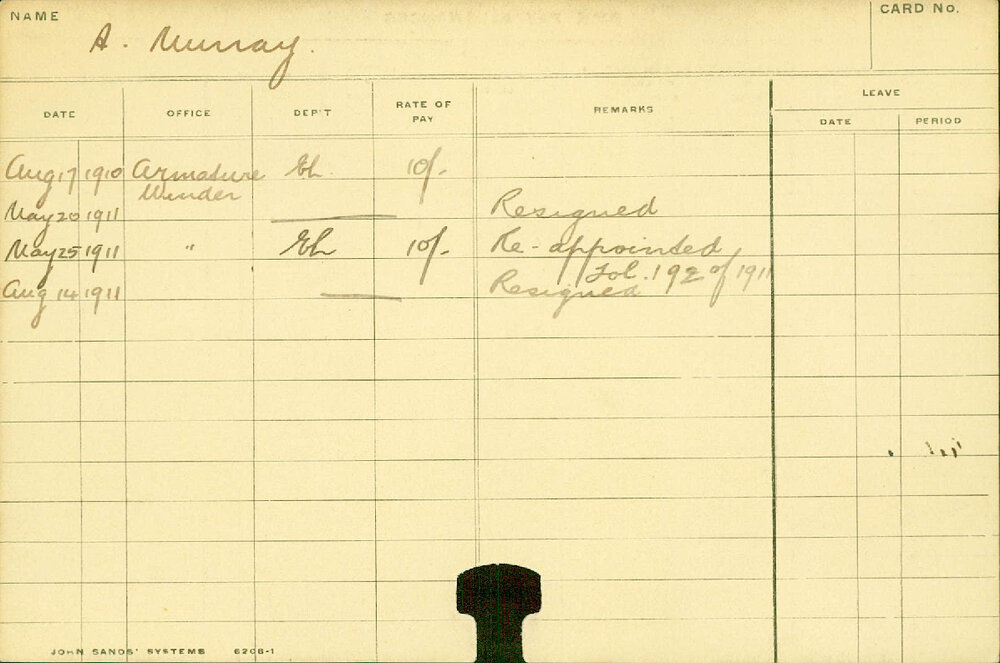 NAME
A. Murray.
CARD No.
DATE OFFICE DEP'T RATE OF PAY REMARKS LEAVE
DATE PERIOD
Aug 17 1910 Armature El. 10/-
Winder
May 20 1911 Resigned
May 25 1911 " El 10/- Re-appointed
Fol. 192 of 1911
Aug 14 1911 Resigned
JOHN SANDS' SYSTEMS 6208-1